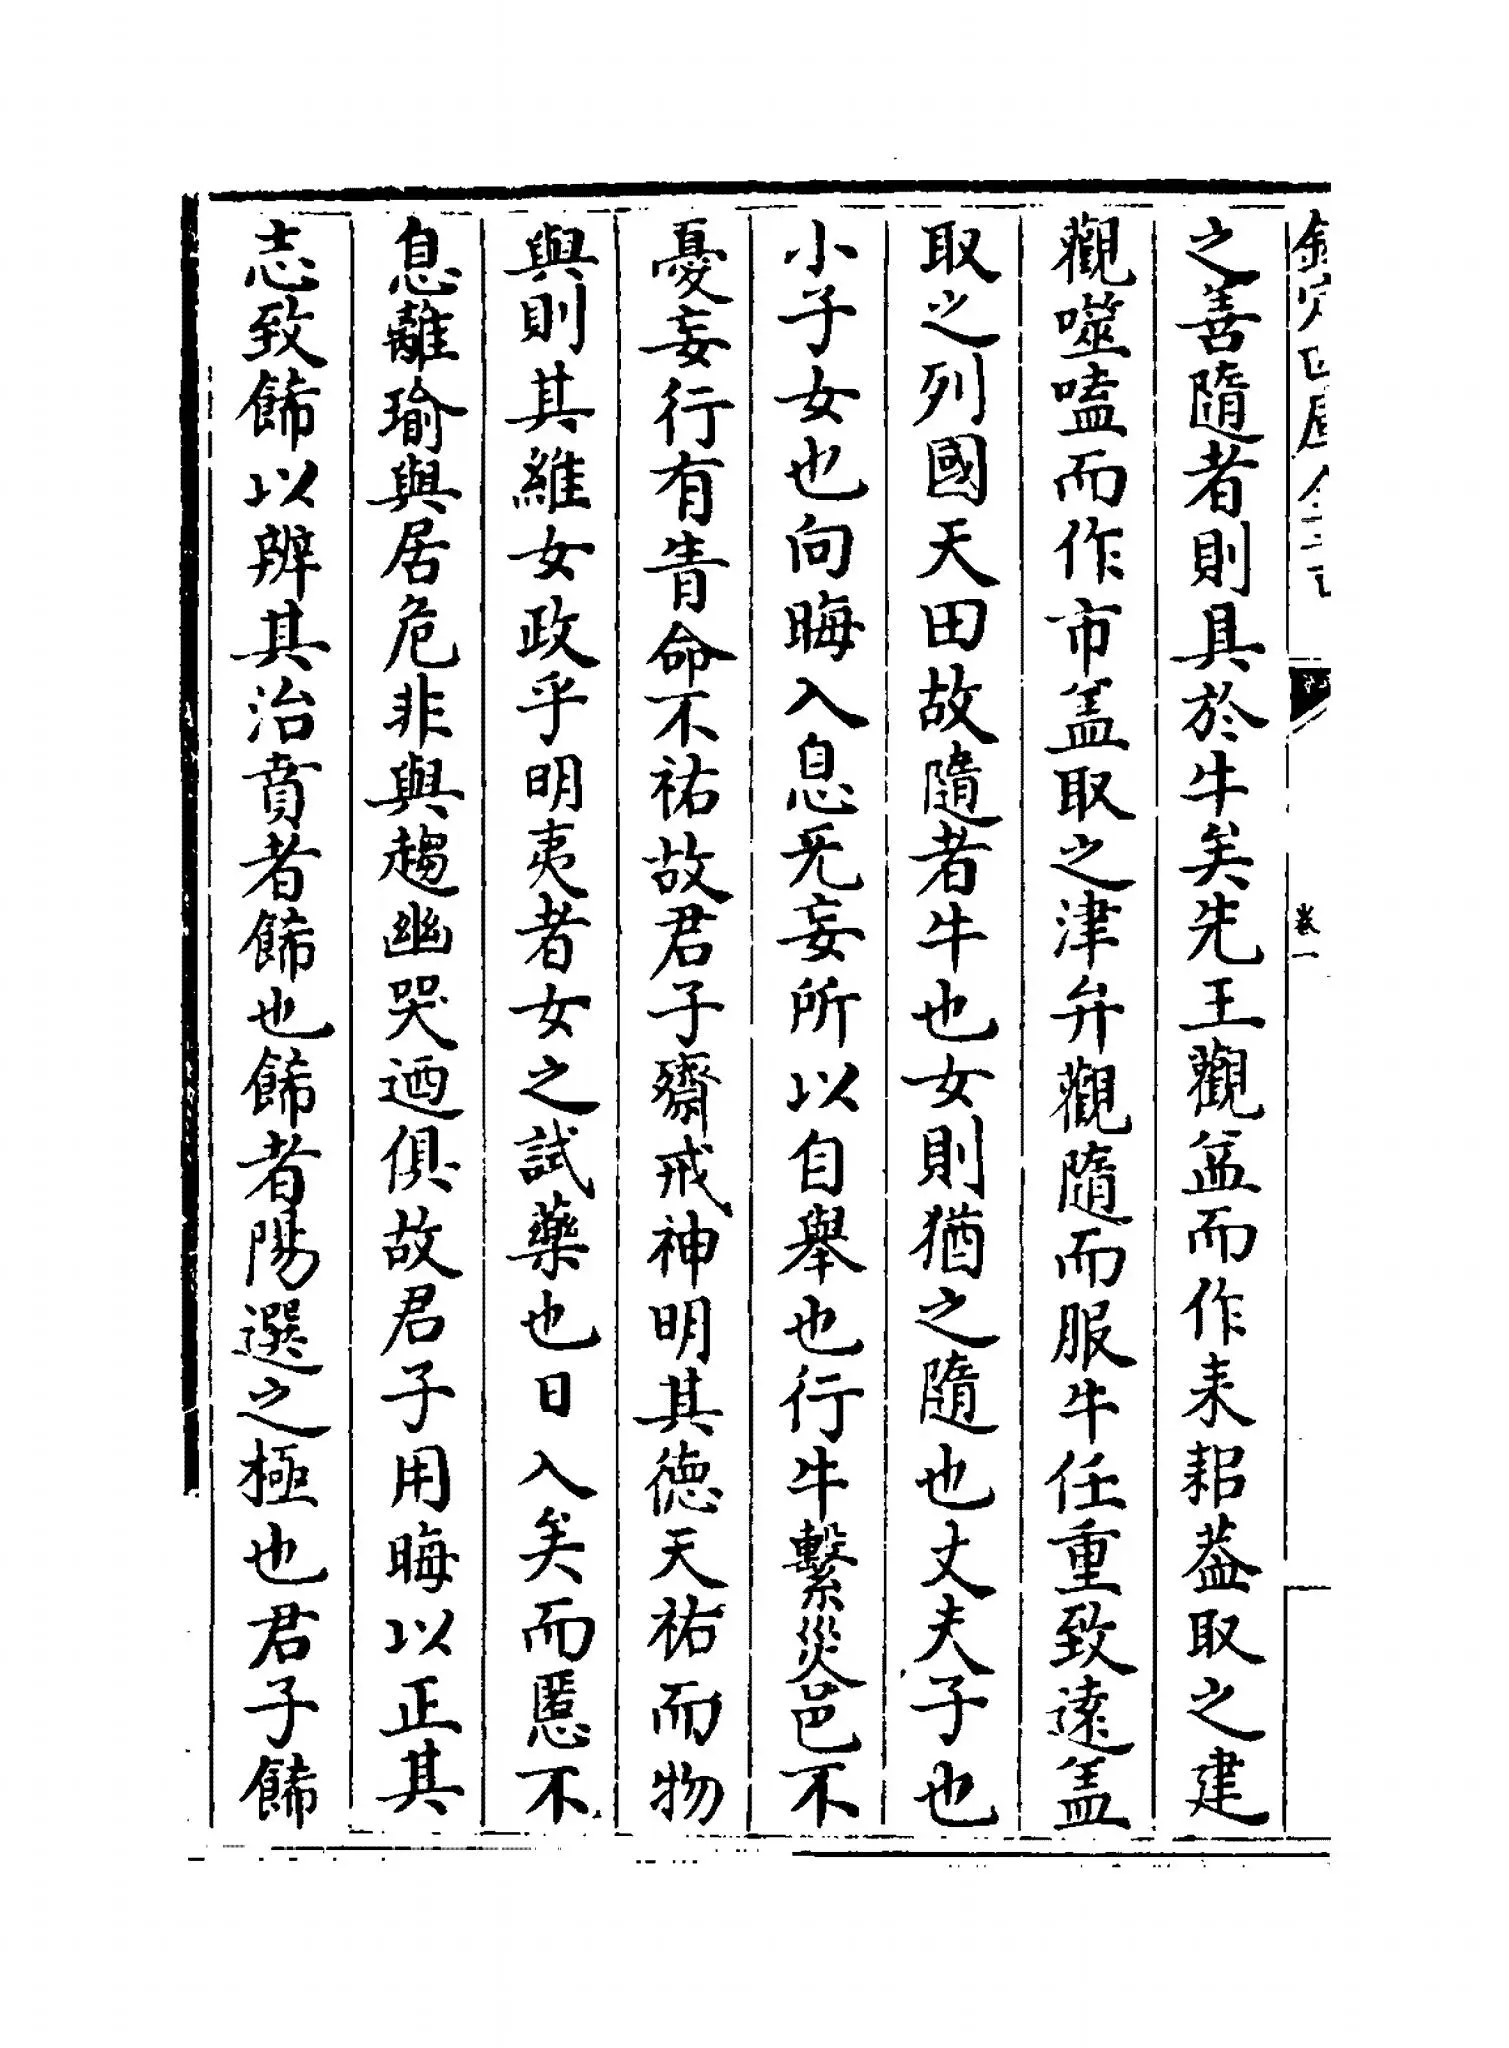 欽定四庫全書
卷一
之善隨者則具於牛矣先王觀益而作耒耜葢取之建
觀噬嗑而作市盖取之津弁觀隨而服牛任重致逺盖
取之列國天田故隨者牛也女則猶之隨也丈夫子也
小子女也向晦入息无妄所以自舉也行牛繫災邑不
憂妄行有眚命不祐故君子齋戒神明其徳天祐而物
與則其維女政乎明夷者女之試藥也日入矣而慝不
息離瑜與居危非與趨幽哭迺俱故君子用晦以正其
志致餙以辨其治賁者餙也餙者陽選之極也君子餙